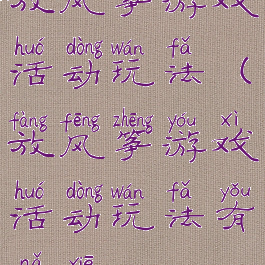 放风筝游戏
huó dòng wán fǎ
活动玩法（
fàng fēng zhēng yóu xì
放风筝游戏
huó dòng wán fǎ yǒu
活动玩法有
nǎ xiē